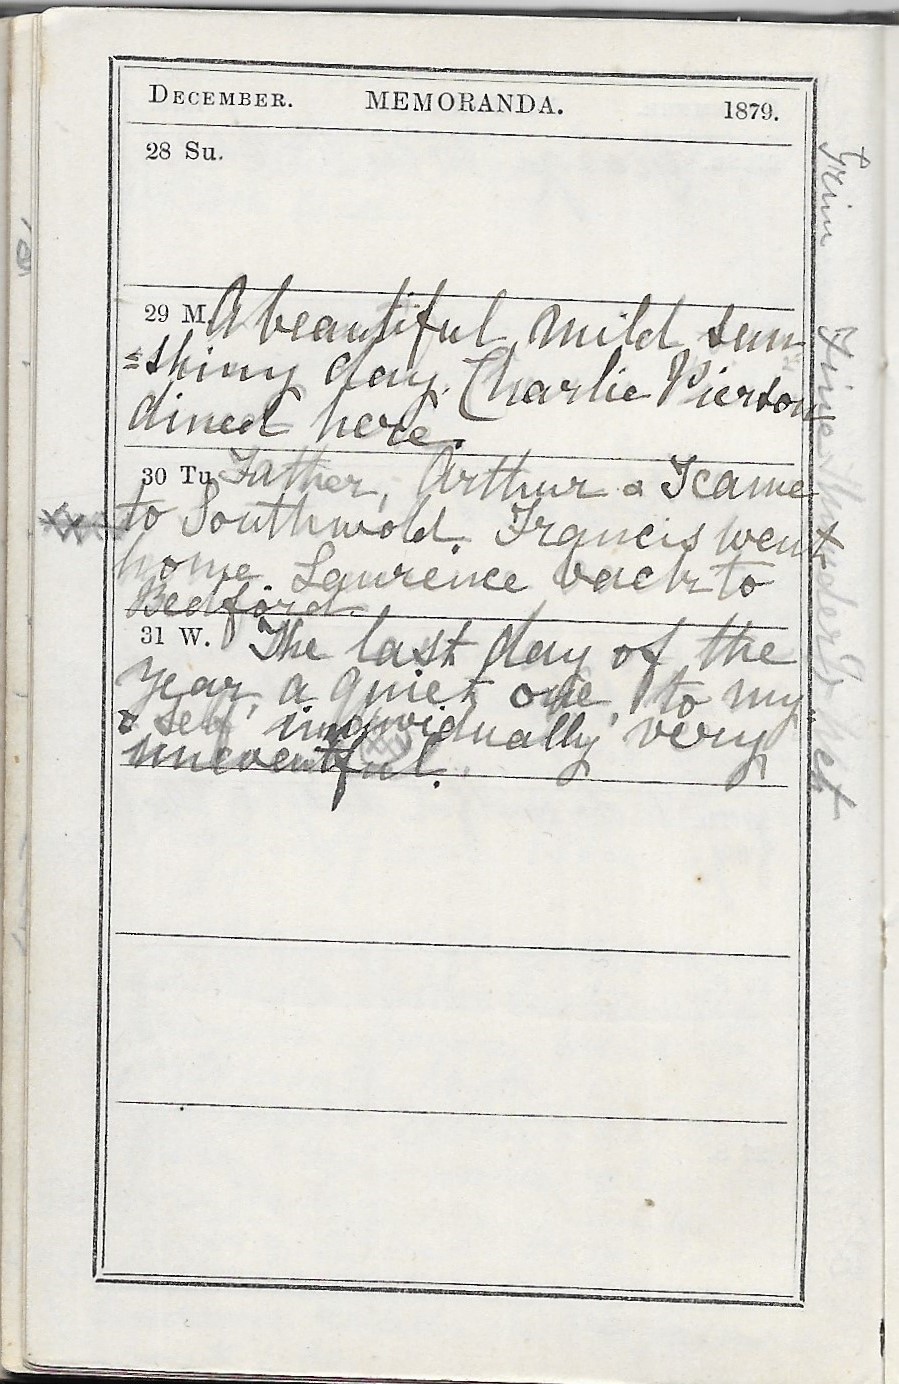 DECEMBER. MEMORANDA. 1879.
28 Su.
29 M. A beautiful mild sun
=shiny day. Charlie Pierson
dined here.
30 Tu Father, Arthur & I came
to Southwold. Francis went
home. Laurence back to
Bedford.
31 W. The last day of the
Year, a quiet one, to my
self, individually very
uneventful.
Grim
Fine
wet